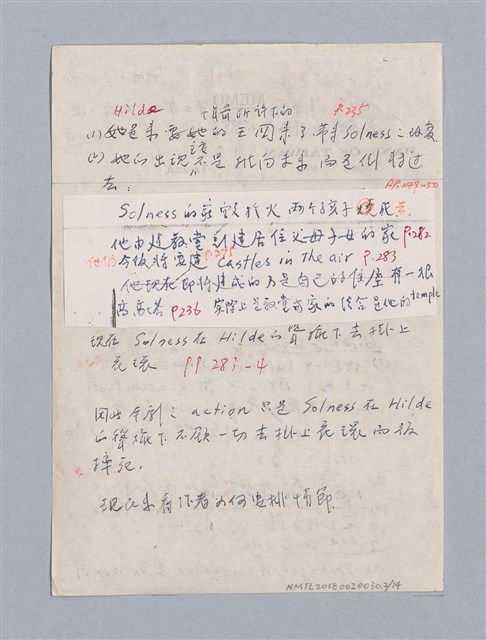 Hilde 十年前所許下的 P.235
(1) 她是來要她的王國來了. 帶來Solness之毀滅
(2) 她的出現不是 指向未來 而是倒轉過
去: PP.249-50
Solness的家毀於火 兩个孩子燒死去
他由建教堂到建居住父母子女的家 P.282
他们今後將要建 Castles in the air P.283
P.275
他現在即將建成的乃是自己的住屋有一很
高高塔 P236 實際上是教堂与家的结合是他的temple
現在 Solness 在 Hilde的聳恿下去掛上
花環 P.P. 283-4
因此全劇之 action 只是 Solness 在 Hilde
的聳恿下 不顧一切去掛上花環而後
摔死.
現在來看作者如何安排情節.
NMTL20180020030.3/14